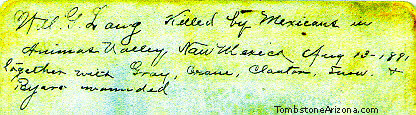 W. G. Lang Killed by Mexicans in
Animas Valley New Mexico Aug 13-1881
together with Gray, Crane, Clanton, Snow. &
Byars wounded
TombstoneArizona.com